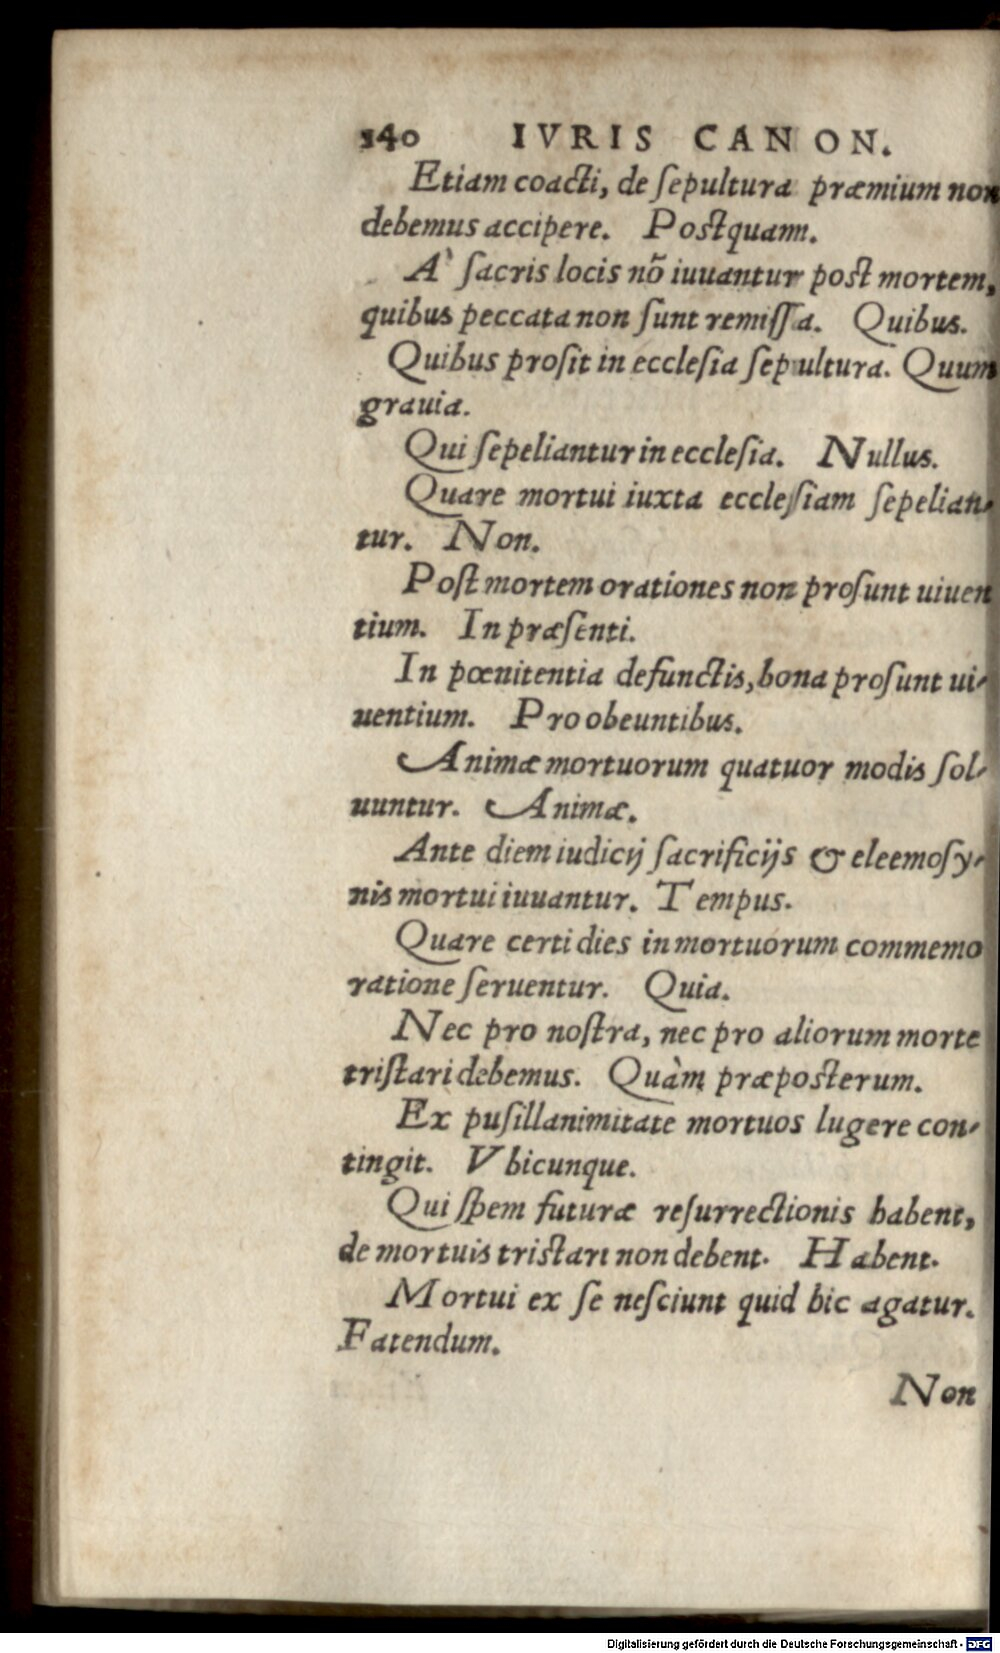 140 IVRIS CANON.
Etiam coacti, de ſepultura præmium non
debemus accipere. Postquam.
A' ſacris locis nō iuuantur post mortem,
quibus peccata non ſunt remiſſa. Quibus.
Quibus proſit in eccleſia ſepultura. Quum
grauia.
Qui ſepeliantur in eccleſia. Nullus.
Quare mortui iuxta eccleſiam ſepelian-
tur. Non.
Poſt mortem orationes non proſunt uiuen
tium. In præſenti.
In pœnitentia defunctis, bona proſunt ui-
uentium. Pro obeuntibus.
Animæ mortuorum quatuor modis ſol-
uuntur. Animæ.
Ante diem iudicij ſacrificijs & eleemoſy-
nis mortui iuuantur. Tempus.
Quare certi dies in mortuorum commemo
ratione ſeruentur. Quia.
Nec pro noſtra, nec pro aliorum morte
triſtari debemus. Quàm præposterum.
Ex puſillanimitate mortuos lugere con-
tingit. Vbicunque.
Qui ſpem futuræ reſurrectionis habent,
de mortuis tristari non debent. Habent.
Mortui ex ſe neſciunt quid hic agatur.
Fatendum.
Non
Digitalisierung gefördert durch die Deutsche Forschungsgemeinschaft - DFG